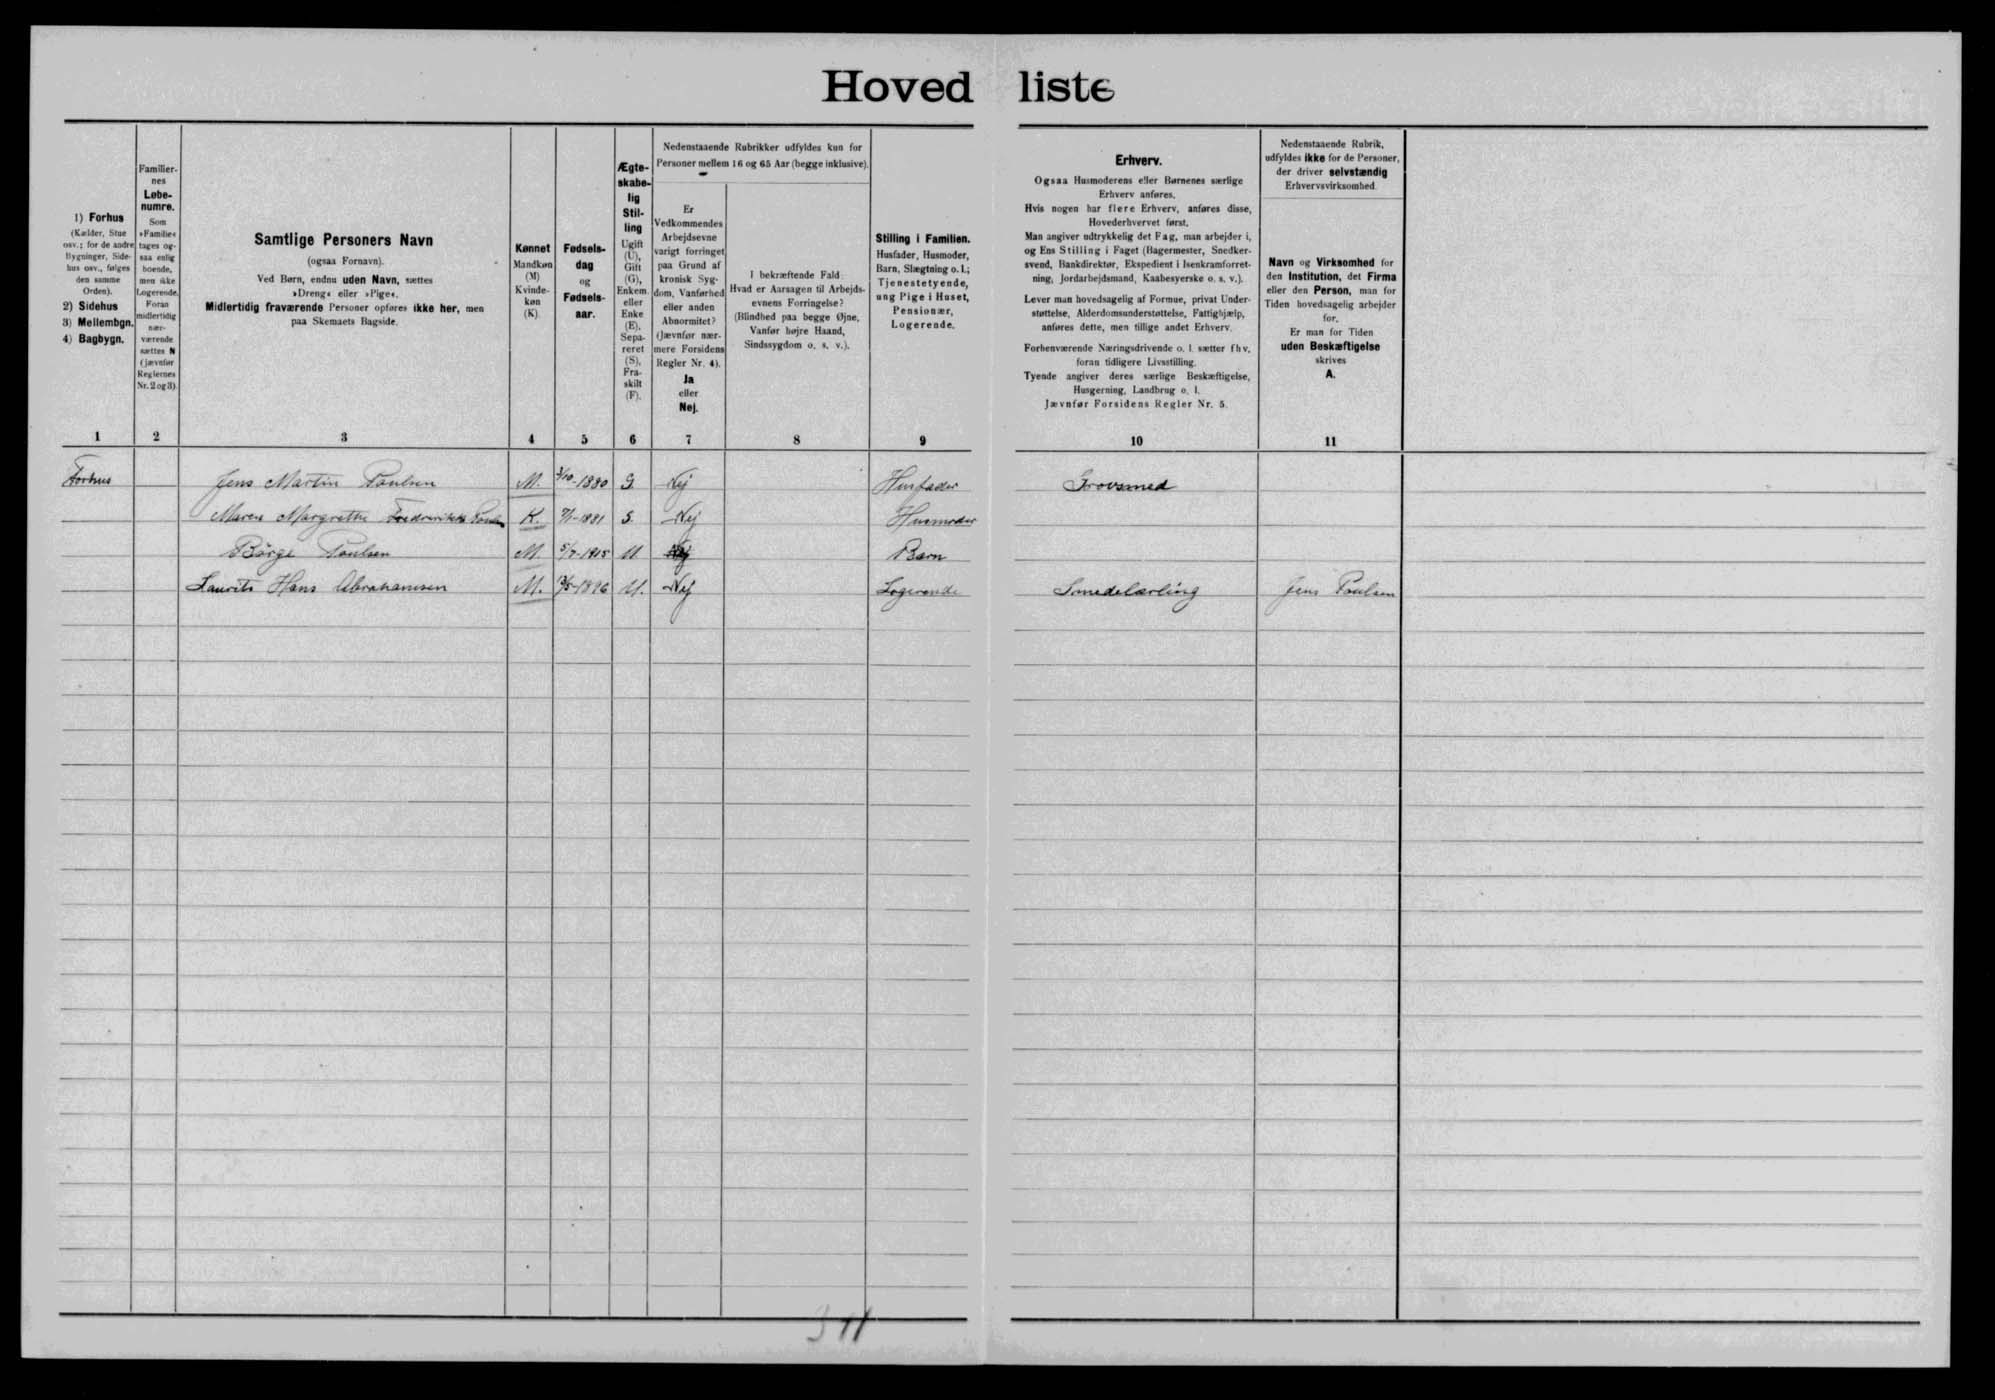 Hovedliste
1) Forhus
(Kælder, Stue
osv.; for de andre
Bygninger, Side-
hus osv., følges
den samme
Orden).
2) Sidehus
3) Mellembgn.
4) Bagbygn.
Familier-
nes
Løbe-
numre.
Som
»Familie«
tages og-
saa enlig
boende,
men ikke
Logerende.
Foran
midlertidig
nær-
værende
sættes N
(jævnfør
Reglernes
Nr. 2 og 3).
Samtlige Personers Navn
(ogsaa Fornavn).
Ved Børn, endnu uden Navn, sættes
»Dreng« eller »Pige«.
Midlertidig fraværende Personer opføres ikke her, men
paa Skemaets Bagside.
Kønnet
Mandkøn
(M)
Kvinde-
køn
(K).
Fødsels-
dag
og
Fødsels-
aar.
Ægte-
skabe-
lig
Stil-
ling
Ugift
(U),
Gift
(G),
Enkem.
eller
Enke
(E).
Sepa-
reret
(S),
Fra-
skilt
(F).
Nedenstaaende Rubrikker udfyldes kun for
Personer mellem 16 og 65 Aar (begge inklusive).
Er
Vedkommendes
Arbejdsevne
varigt forringet
paa Grund af
kronisk Syg-
dom, Vanførhed
eller anden
Abnormitet?
(Jævnfør nær-
mere Forsidens
Regler Nr. 4).
Ja
eller
Nej.
I bekræftende Fald:
Hvad er Aarsagen til Arbejds-
evnens Forringelse?
(Blindhed paa begge Øjne,
Vanfør højre Haand,
Sindssygdom o. s. v.).
Stilling i Familien.
Husfader, Husmoder,
Barn, Slægtning o. l.;
Tjenestetyende,
ung Pige i Huset,
Pensionær,
Logerende.
Erhverv.
Ogsaa Husmoderens eller Børnenes særlige
Erhverv anføres.
Hvis nogen har flere Erhverv, anføres disse,
Hovederhvervet først.
Man angiver udtrykkelig det Fag, man arbejder i,
og Ens Stilling i Faget (Bagermester, Snedker-
svend, Bankdirektør, Ekspedient i Isenkramforret-
ning, Jordarbejdsmand, Kaabesyerske o. s. v.).
Lever man hovedsagelig af Formue, privat Under-
støttelse, Alderdomsunderstøttelse, Fattighjælp,
anføres dette, men tillige andet Erhverv.
Forhenværende Næringsdrivende o. l. sætter fhv.
foran tidligere Livsstilling.
Tyende angiver deres særlige Beskæftigelse,
Husgerning, Landbrug o. l.
Jævnfør Forsidens Regler Nr. 5.
Nedenstaaende Rubrik,
udfyldes ikke for de Personer,
der driver selvstændig
Erhvervsvirksomhed.
Navn og Virksomhed for
den Institution, det Firma
eller den Person, man for
Tiden hovedsagelig arbejder
for.
Er man for Tiden
uden Beskæftigelse
skrives
A.
1 2 3 4 5 6 7 8 9 10 11
Forhus Jens Martin Poulsen M. 3/10-1880 G. Nej Husfader Grovsmed
Maren Margrethe K. 1881 Nej Husmoder
Børge Poulsen M 5/7-1915 U Barn
Laurits Hans Abrahamsen M. 1896 U. Nej Logerende Smedelærling Jens Poulsen